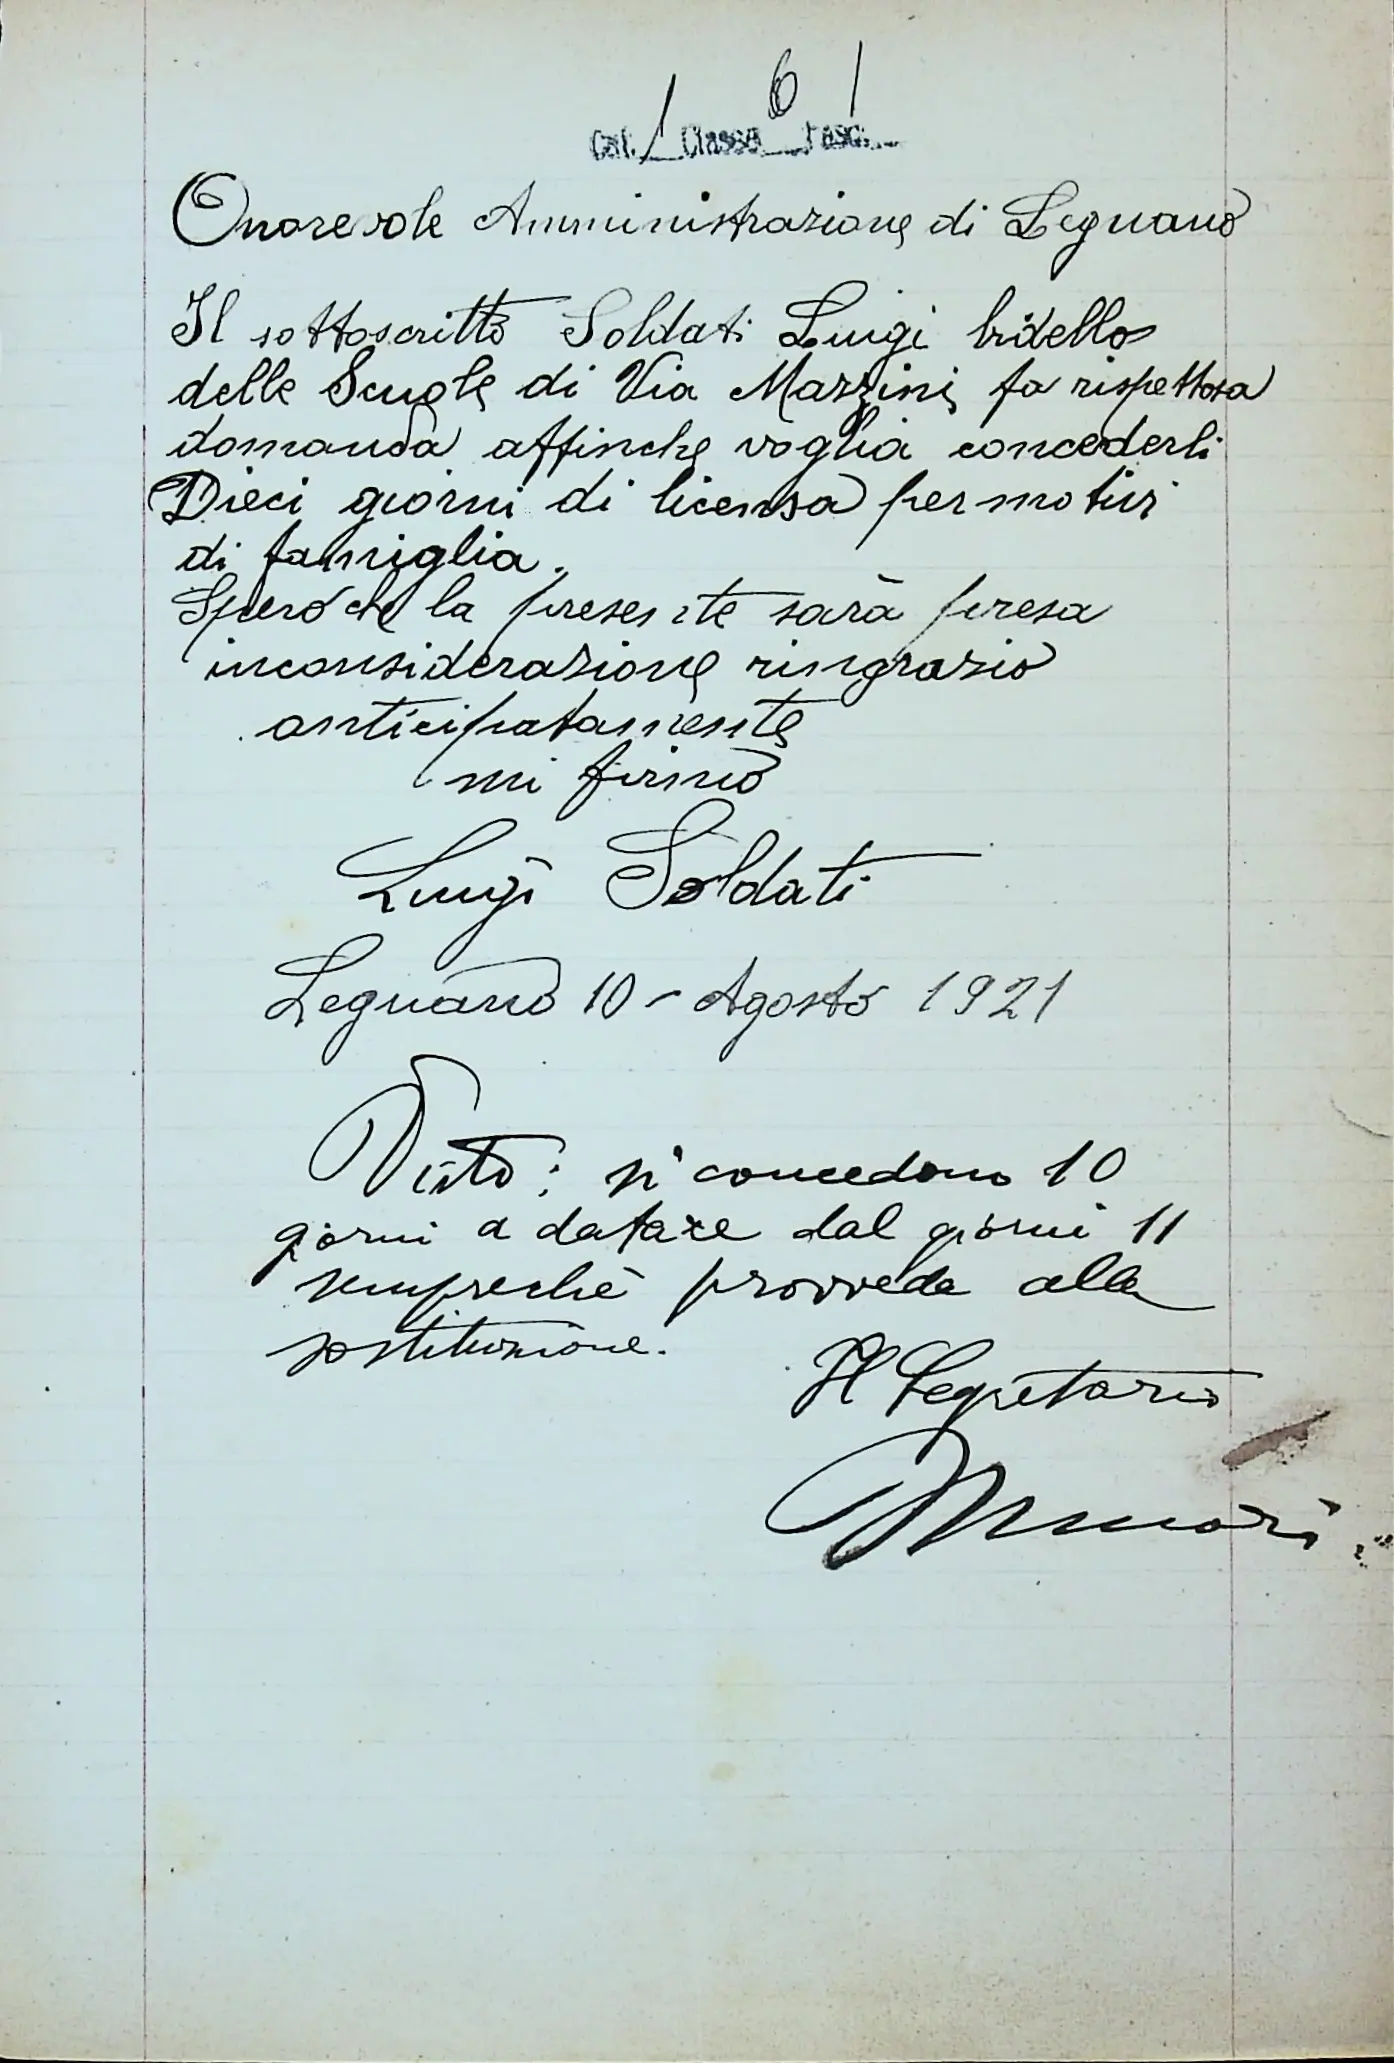 1 6 1
Cat. Classe Fasc.
Onorevole Amministrazione di Legnano
Il sottoscritto Soldati Luigi bidello
delle Scuole di Via Mazzini fa rispettosa
domanda affinche voglia concederli
Dieci giorni di licensa per motivi
di famiglia.
Spero che la presente sarà presa
inconsiderazione ringrazio
anticipatamente
mi firmo
Luigi Soldati
Legnano 10 - Agosto 1921
Visto: si concedono 10
giorni a datare dal giorni 11
sempreché provveda alla
sostituzione.
Il Segretario